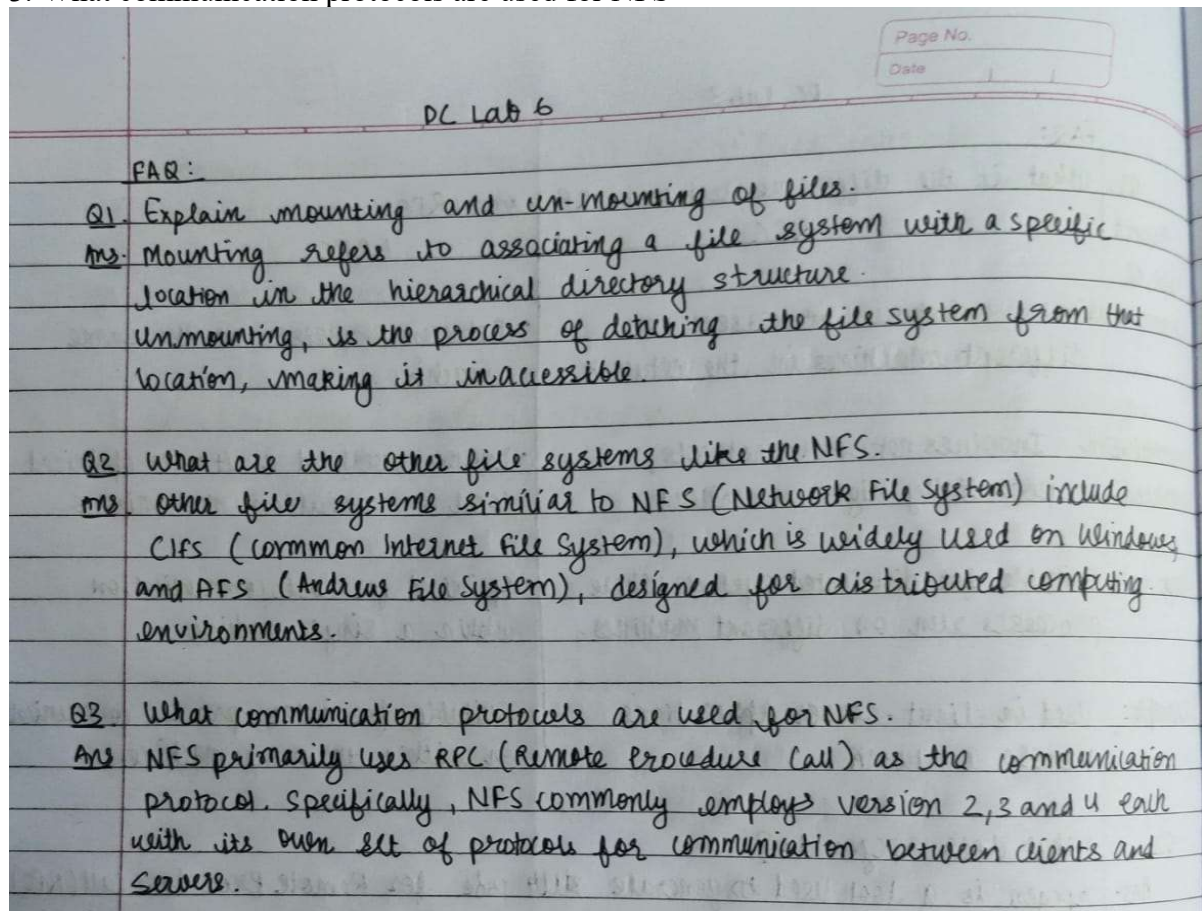 3. What communication protocols are used for NFS
Page No.
Date
DC Lab 6
FAQ:
Q1. Explain mounting and un-mounting of files.
Ans. Mounting refers to associating a file system with a specific
location in the hierarchical directory structure.
Unmounting, is the process of detaching the file system from that
location, making it inaccessible.
Q2 What are the other file systems like the NFS.
Ans. Other file systems similiar to NFS (Network File System) include
CIFS (Common Internet File System), which is widely used on Windows,
and AFS (Andrew File System), designed for distributed computing
environments.
Q3. What communication protocols are used for NFS.
Ans NFS primarily uses RPC (Remote Procedure Call) as the communication
protocol. Specifically, NFS commonly employs version 2,3 and 4 each
with its own set of protocols for communication between clients and
servers.